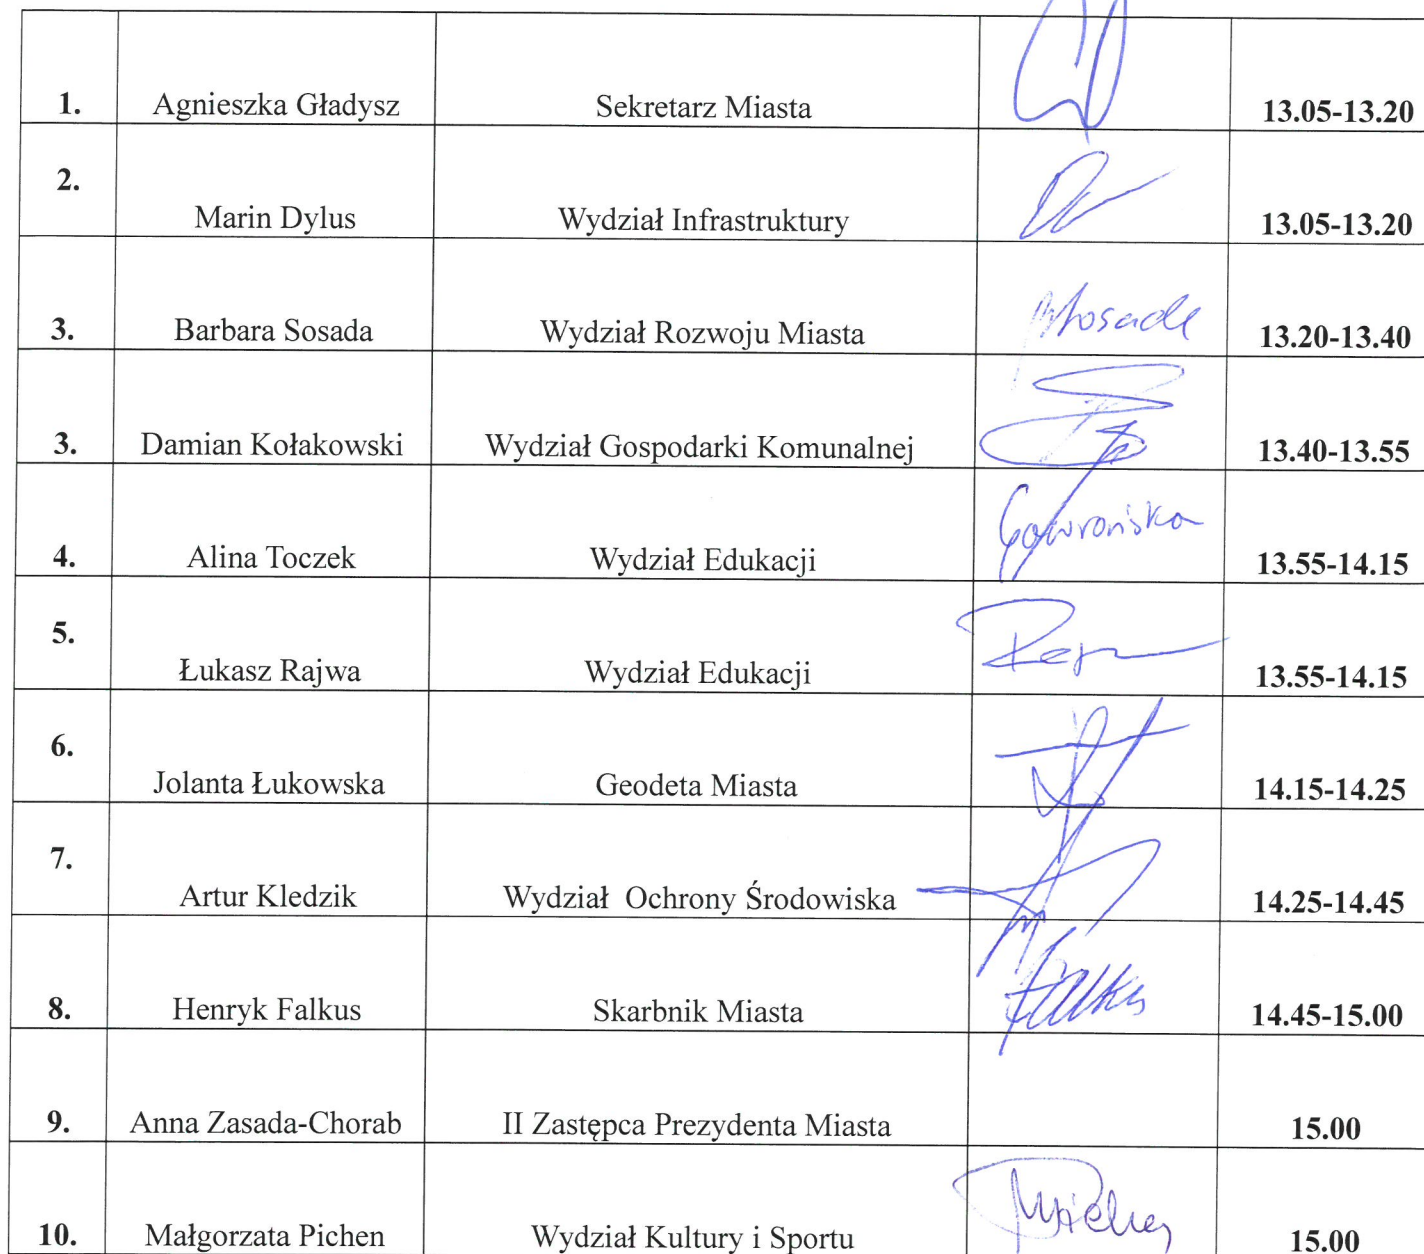 1. Agnieszka Gładysz Sekretarz Miasta 13.05-13.20
2. Marin Dylus Wydział Infrastruktury 13.05-13.20
3. Barbara Sosada Wydział Rozwoju Miasta 13.20-13.40
3. Damian Kołakowski Wydział Gospodarki Komunalnej 13.40-13.55
4. Alina Toczek Wydział Edukacji Gawrońska 13.55-14.15
5. Łukasz Rajwa Wydział Edukacji 13.55-14.15
6. Jolanta Łukowska Geodeta Miasta 14.15-14.25
7. Artur Kledzik Wydział Ochrony Środowiska 14.25-14.45
8. Henryk Falkus Skarbnik Miasta 14.45-15.00
9. Anna Zasada-Chorab II Zastępca Prezydenta Miasta 15.00
10. Małgorzata Pichen Wydział Kultury i Sportu 15.00